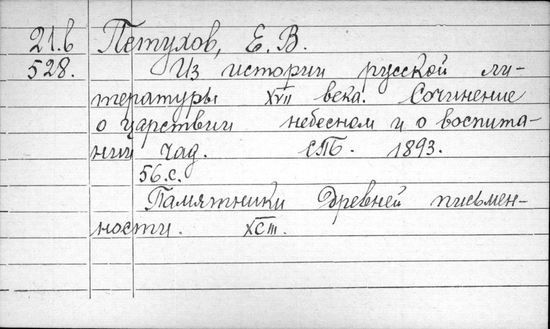 21.6 Петухов, Е. В.
528. Из истории русской ли-
тературы XVII века. Сочинение
о царствии небесном и о воспита-
нии чад. СПБ. 1893.
56.с.
Памятники древней письмен-
ности. XCIII.